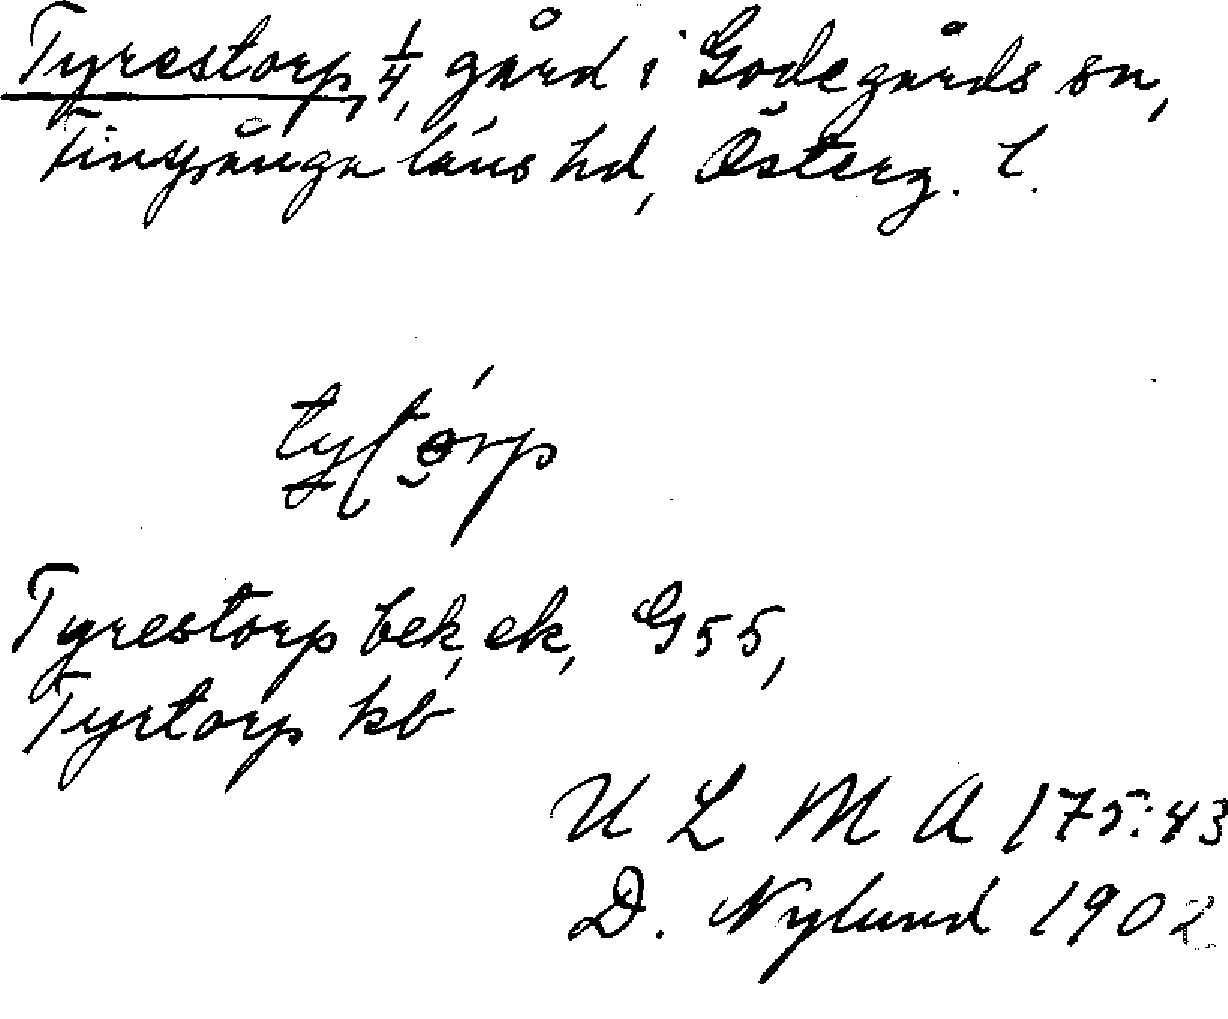 Tyrestorp, 1/4, gård i Godegårds sn,
Finspånga läns hd, Österg. l.
Tyrestorp bek, ek, G55,
Tyrtorp kb
U L M A 175:43
D. Nylund 1902